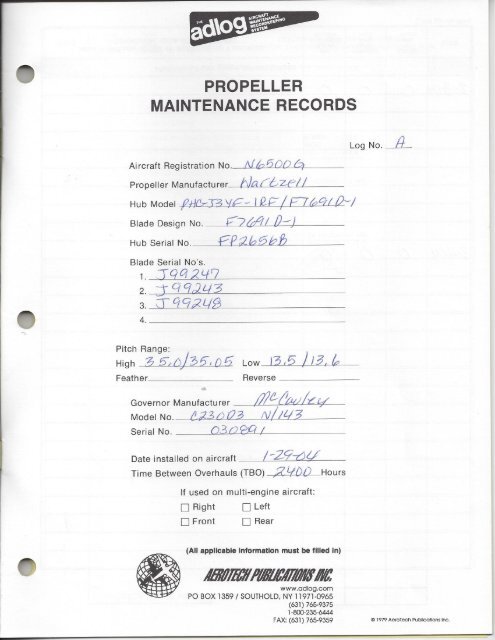 THE adlog AIRCRAFT MAINTENANCE RECORDKEEPING SYSTEM
PROPELLER
MAINTENANCE RECORDS
Log No. A
Aircraft Registration No. N6500G
Propeller Manufacturer Hartzell
Hub Model PHC-J3YF-1RF/F7691D-1
Blade Design No. F7691D-1
Hub Serial No. FP2656B
Blade Serial No's.
1. J99247
2. J99243
3. J99248
4.
Pitch Range:
High 35.0/35.05 Low 13.5/13.6
Feather Reverse
Governor Manufacturer McCauley
Model No. C230D3 N/143
Serial No. 030891
Date installed on aircraft 1-29-04
Time Between Overhauls (TBO) 2400 Hours
If used on multi-engine aircraft:
Right Left
Front Rear
(All applicable information must be filled in)
AEROTECH PUBLICATIONS INC.
www.adlog.com
PO BOX 1359 / SOUTHOLD, NY 11971-0965
(631) 765-9375
1-800-235-6444
FAX: (631) 765-9359
© 1979 AeroTech Publications Inc.